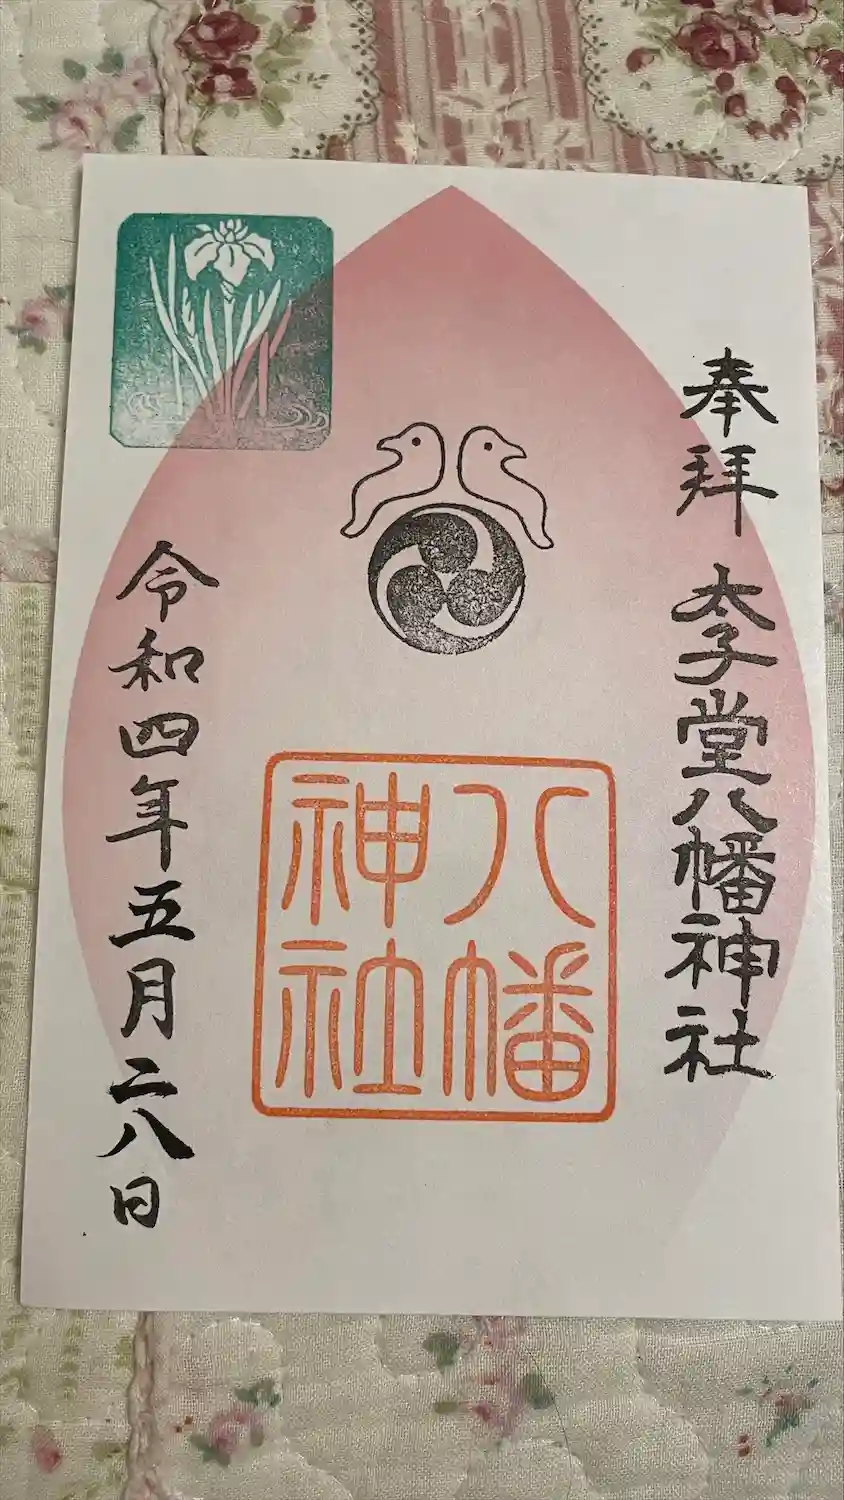 奉拝
太子堂八幡神社
八幡
神社
令和四年五月二八日